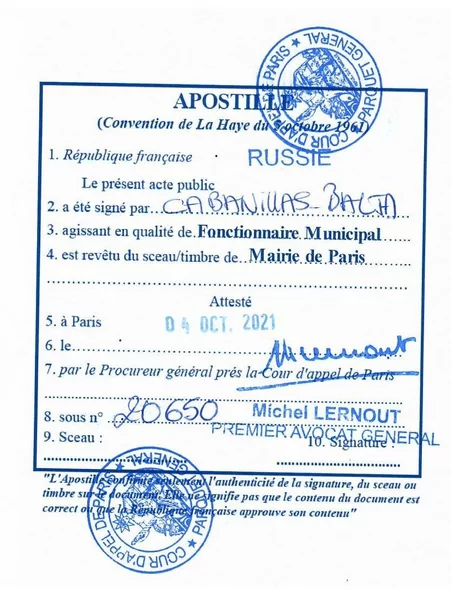 COUR D'APPEL DE PARIS * PARQUET GENERAL *
APOSTILLE
(Convention de La Haye du 5 octobre 1961)
1. République française
RUSSIE
Le présent acte public
2. a été signé par...CABANILLAS-BALTA
3. agissant en qualité de Fonctionnaire Municipal
4. est revêtu du sceau/timbre de Mairie de Paris
Attesté
5. à Paris
04 OCT. 2021
6. le
7. par le Procureur général près la Cour d'appel de Paris
8. sous n° 20650
Michel LERNOUT
PREMIER AVOCAT GENERAL
9. Sceau :
10. Signature :
"L'Apostille confirme seulement l'authenticité de la signature, du sceau ou
timbre sur le document. Elle ne signifie pas que le contenu du document est
correct ou que la République française approuve son contenu"
COUR D'APPEL DE PARIS * PARQUET GENERAL *